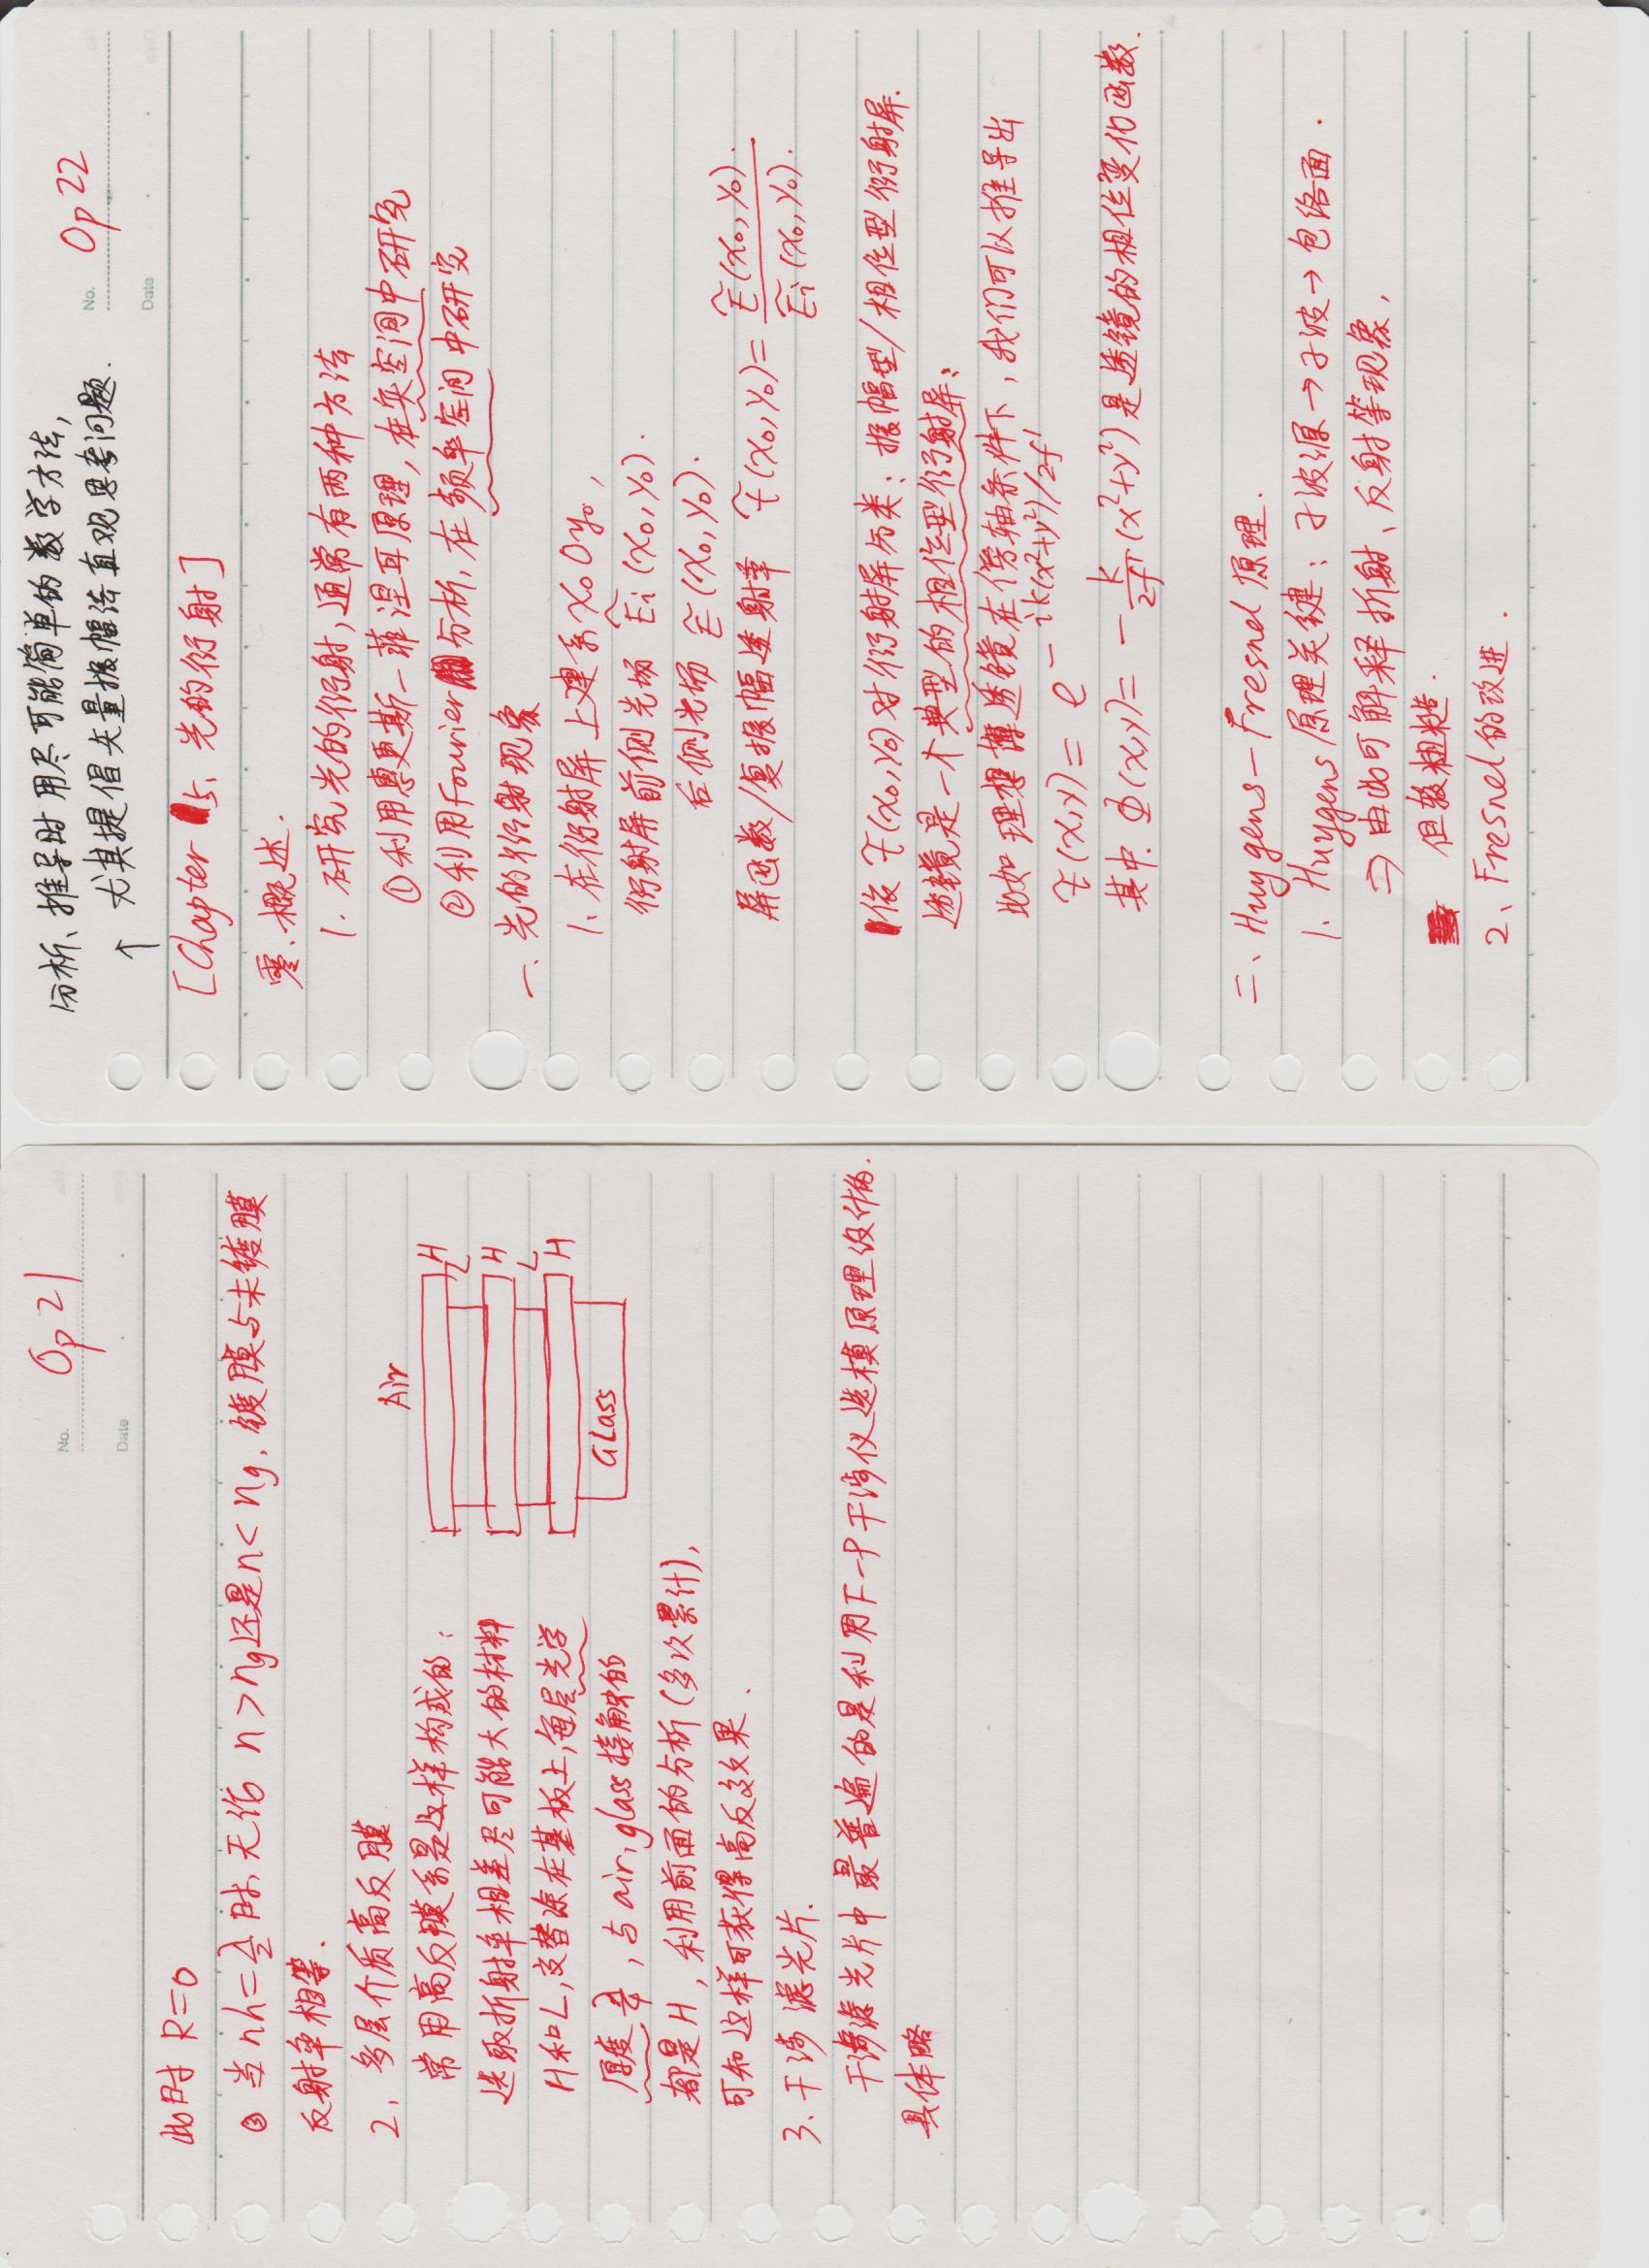 No. Op 21
Date
此时 R=0
③ 当 nh=λ/2 时, 无论 n>ng还是n<ng, 镀膜与未镀膜
反射率相等.
2, 多层介质高反膜
常用高反膜系是这样构成的:
选取折射率相差尽可能大的材料
H和L,交替涂在基板上,每层光学
厚度 λ/4, 与air, glass接触的
都是H, 利用前面的分析(多次累计),
可知这样可获得高反效果.
Air
H
L
H
L
H
GLass
3. 干涉滤光片.
干涉滤光片中最普遍的是利用F-P干涉仪选模原理设计的.
具体略
分析、推导时用尽可能简单的数学方法,
↑ 尤其提倡矢量振幅法直观思考问题.
No. Op 22
Date
[Chapter 5、光的衍射]
零.概述.
1. 研究光的衍射,通常有两种方法
①利用惠更斯-菲涅耳原理,在实空间中研究
②利用Fourier分析,在频率空间中研究
一.光的衍射现象
1.在衍射屏上建系 x₀Oy₀,
衍射屏前侧光场 Ẽi(x₀,y₀).
后侧光场 Ẽ(x₀,y₀).
屏函数/复振幅透射率 t̃(x₀,y₀)= Ẽ(x₀,y₀). / Ẽi(x₀,y₀).
依 t̃(x₀,y₀)对衍射屏分类: 振幅型/相位型衍射屏.
透镜是一个典型的相位型衍射屏:
比如理想薄透镜在傍轴条件下,我们可以推导出
t̃(x,y)= e^{-ik(x²+y²)/2f'}
其中. Φ(x,y)= -k/2f' (x²+y²)是透镜的相位变化函数.
二、Huygens-Fresnel 原理.
1. Huygens原理关键: 子波源→子波→包络面.
⇒ 由此可解释折射、反射等现象,
但较粗糙.
2、Fresnel的改进.